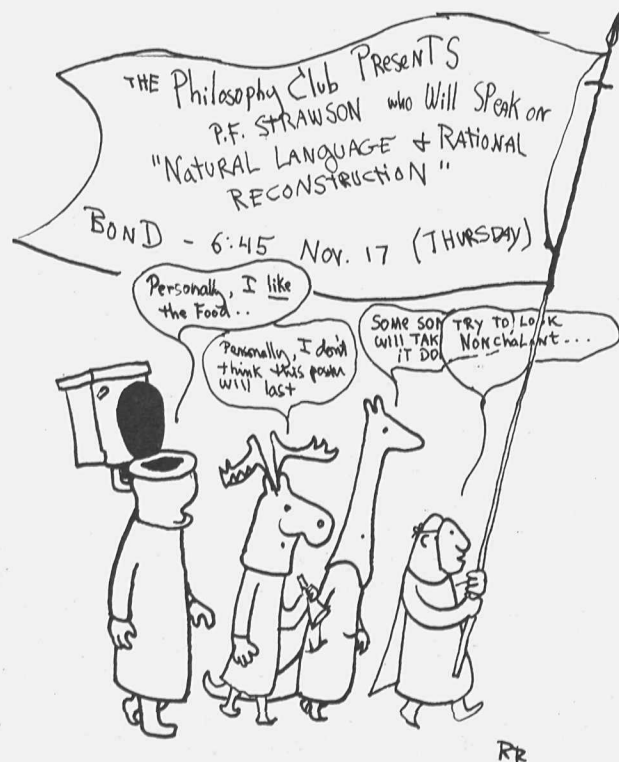 THE Philosophy Club PRESENTS
P.F. STRAWSON who Will SPeak on
"NATURAL LANGUAGE + RATIONAL
RECONSTRUCTION"
BOND - 6:45 Nov. 17 (THURSDAY)
Personally, I like
the Food..
Personally, I don't
think this poster
will last
SOME SON
WILL TAK
IT DO
TRY TO LOOK
NONChaLANT...
RR